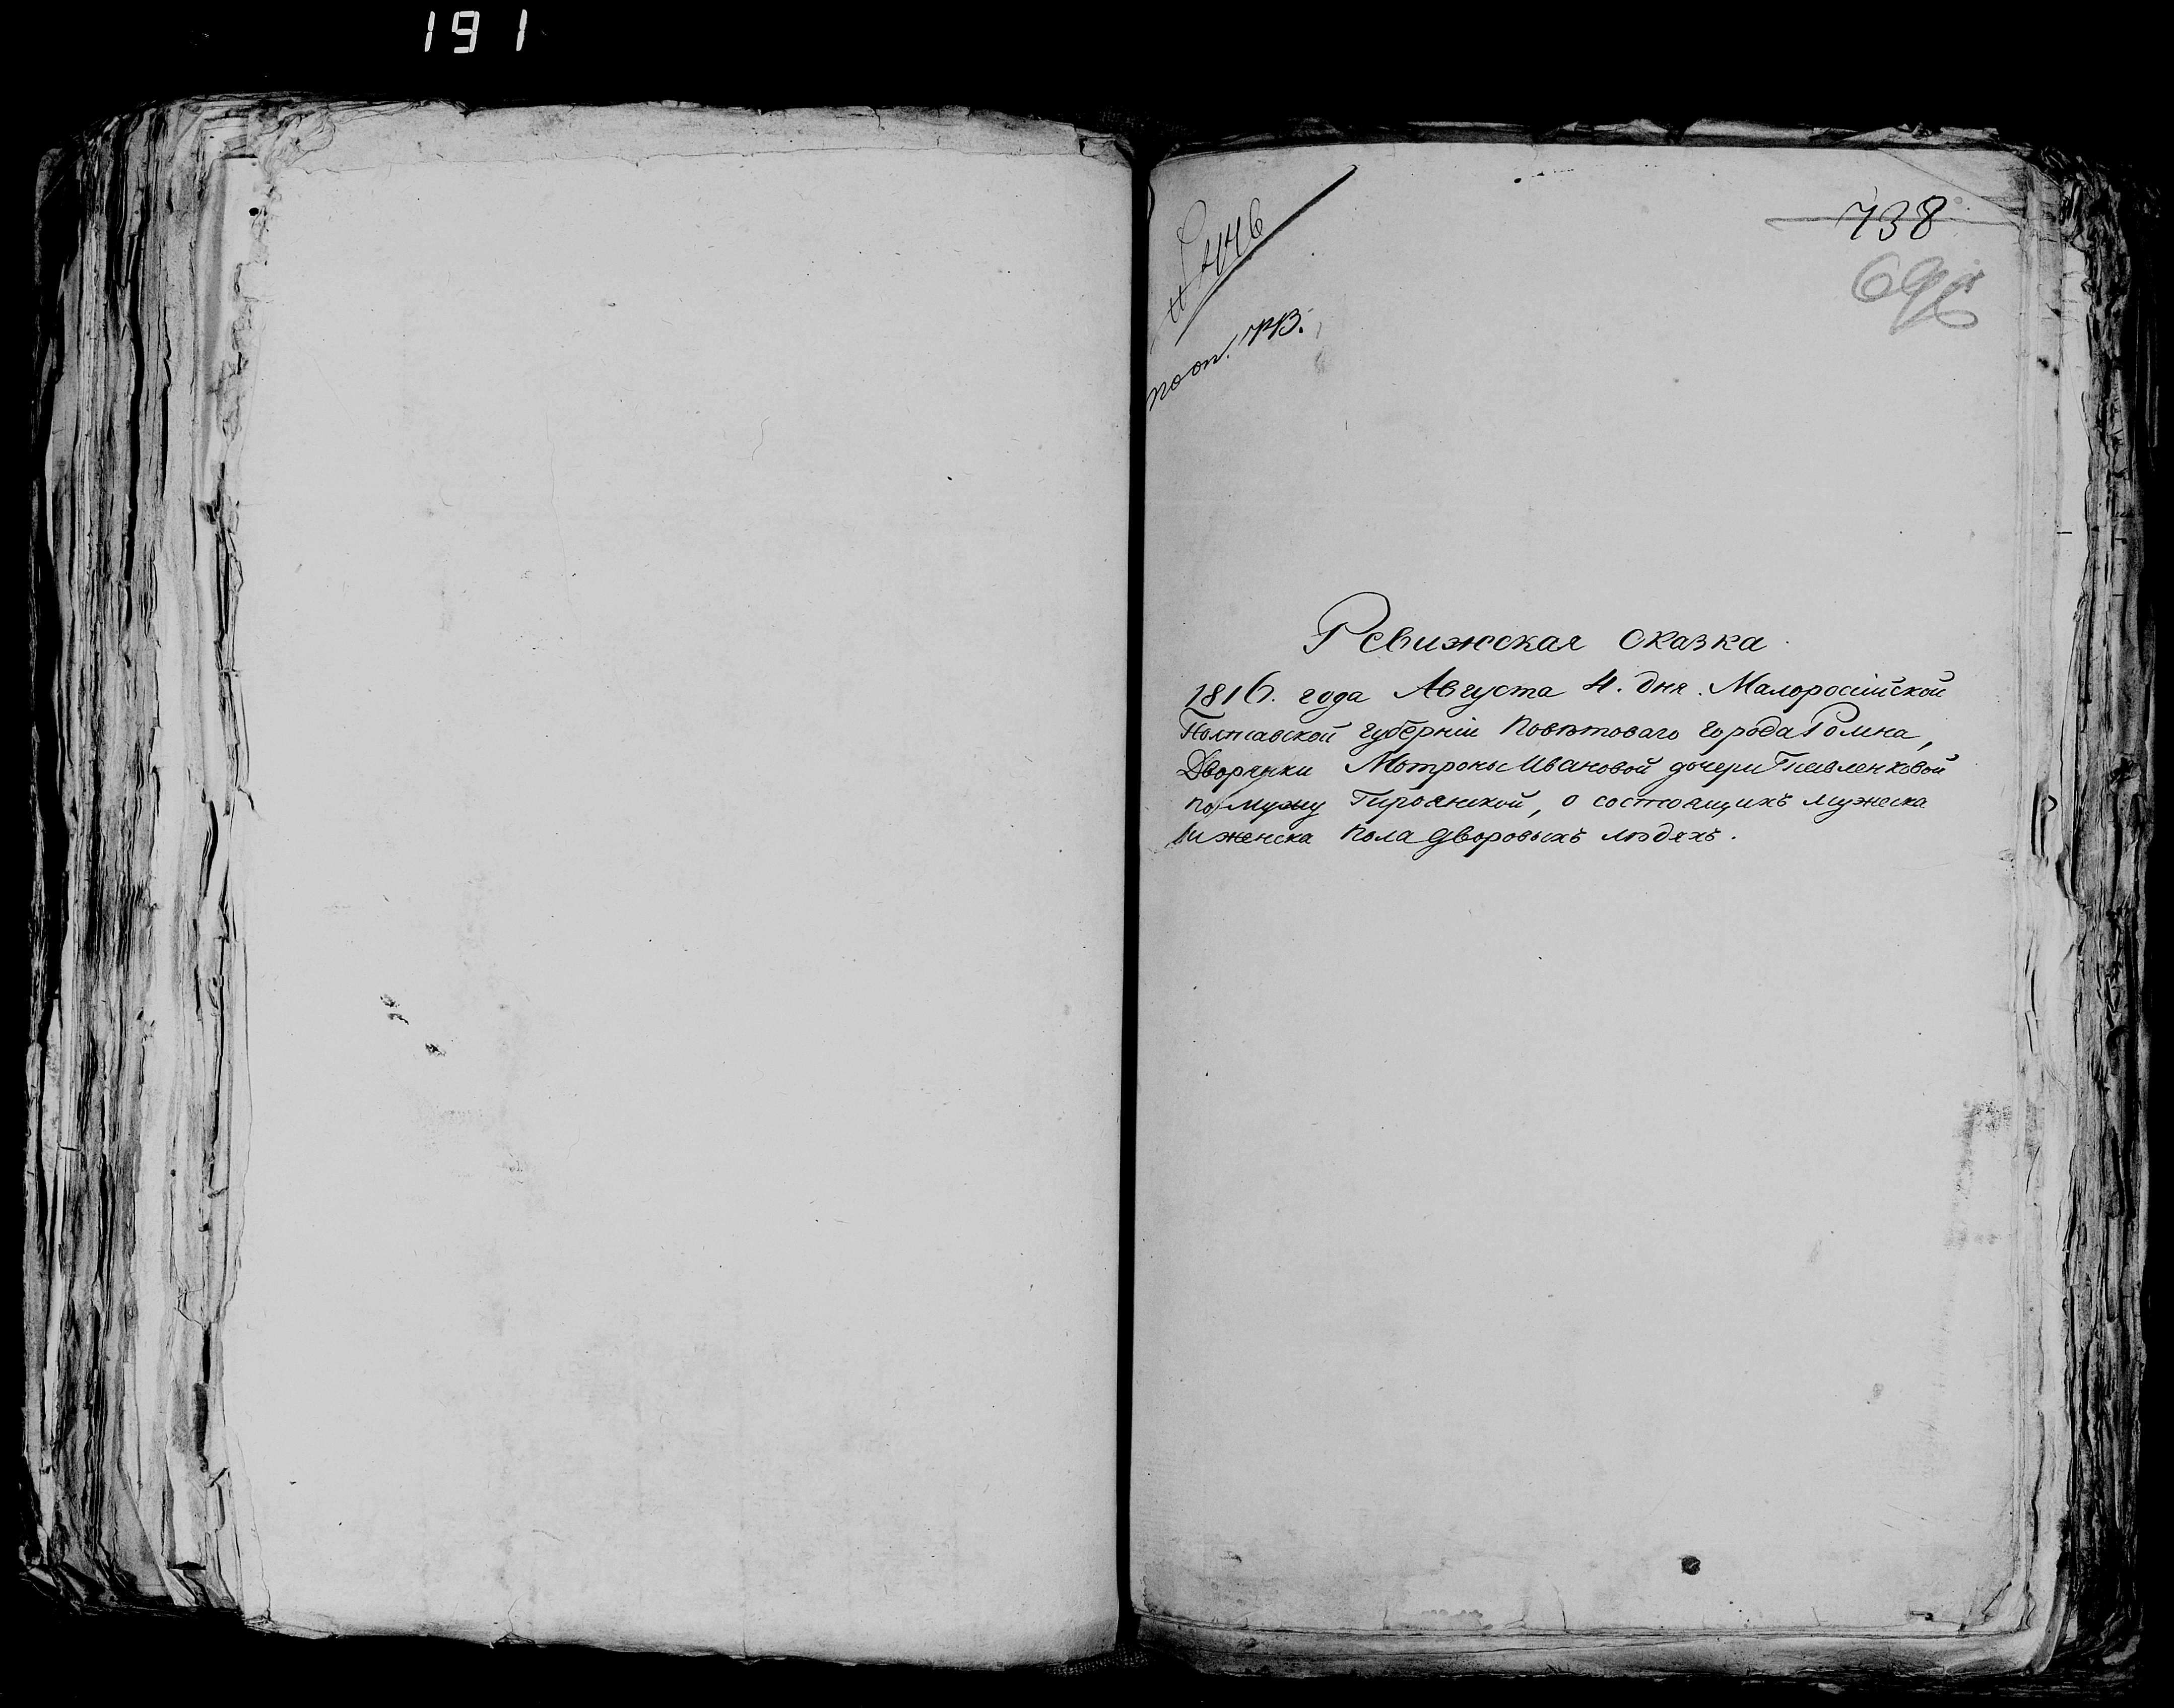 191
738
696
по оп. 713.
Ревижская сказка
1816. года Августа 4. дня. Малоросійской
Полтавской губерніи повѣтоваго города Ромна,
Дворянки Мотроны Ивановой дочери
по мужу о состоящихъ мужеска
и женска пола дворовыхъ людяхъ.